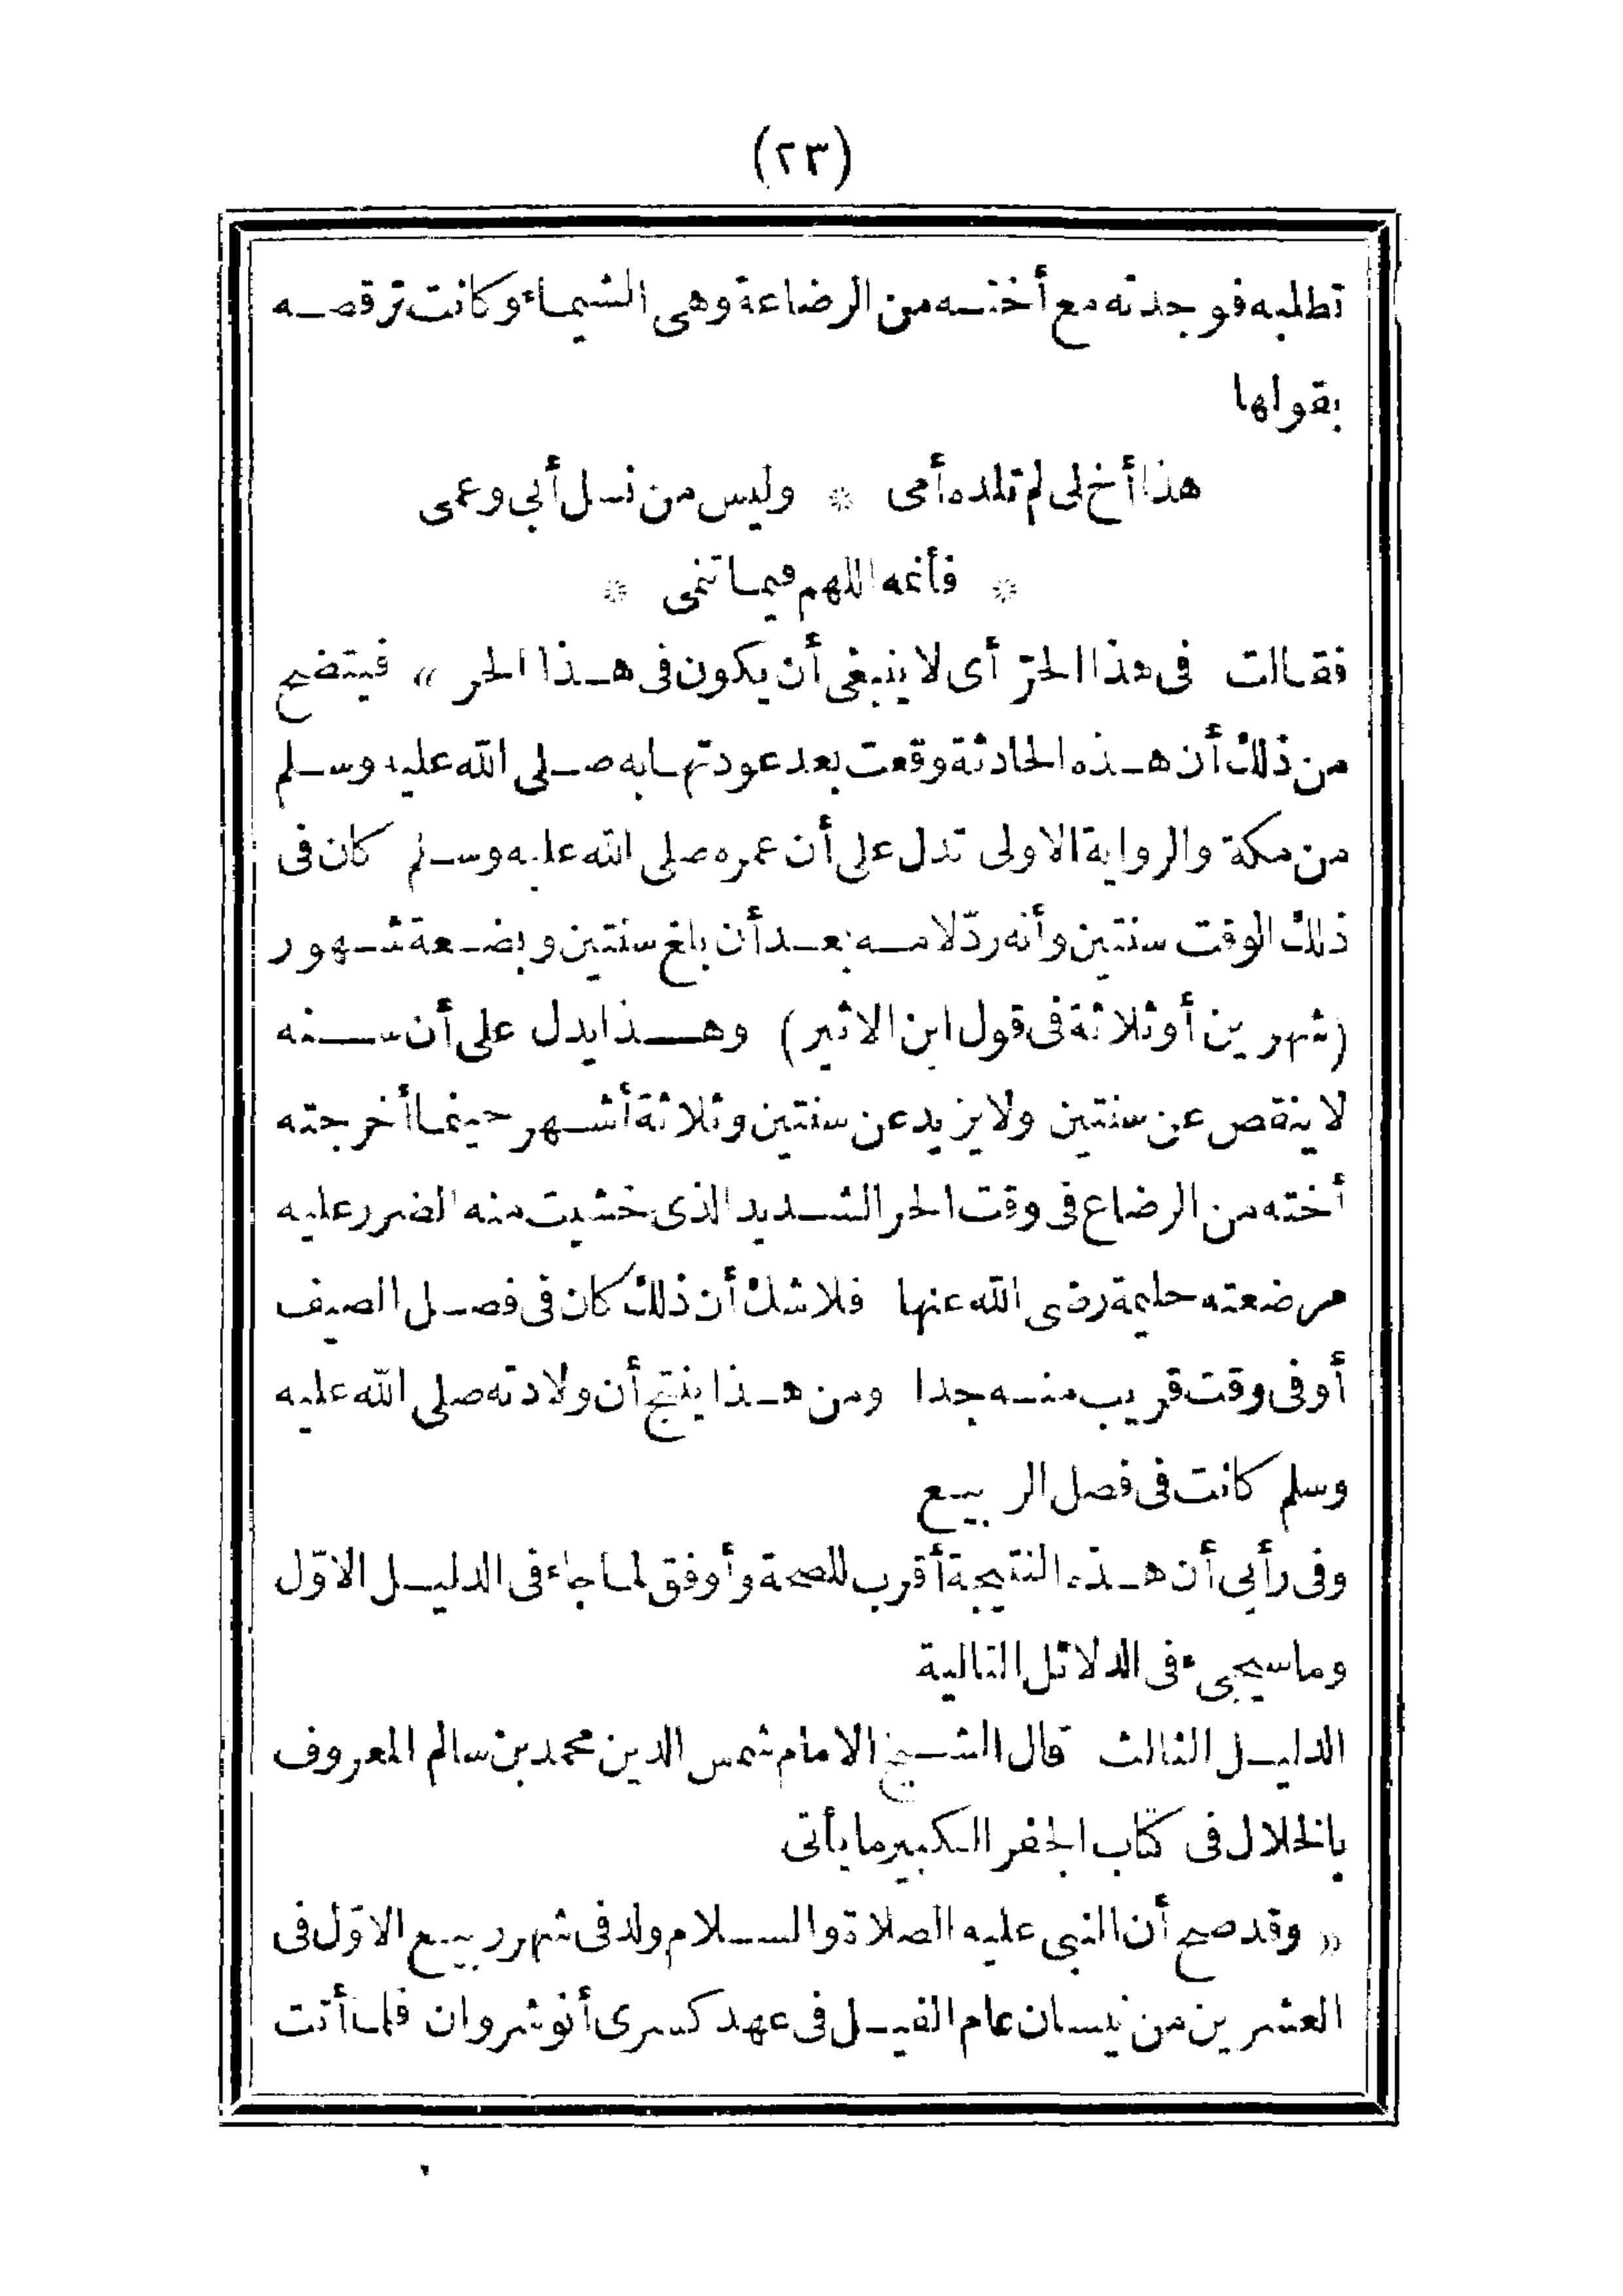 (٢٣)
تطلبه فوجدته مع أخته من الرضاعة وهى الشيماء وكانت ترقصه
بقولها
هذا أخ لى لم تلده أمى * وليس من نسل أبى وعمى
* فأنمه اللهم فيما تنمى *
فقالت فى هذا الحرّ أى لا ينبغى أن يكون فى هذا الحر » فيتضح
من ذلك أن هذه الحادثة وقعت بعد عودتها به صلى الله عليه وسلم
من مكة والرواية الاولى تدل على أن عمره صلى الله عليه وسلم كان فى
ذلك الوقت سنتين وأنه ردّ لامه بعد أن بلغ سنتين وبضعة شهور
(شهرين أو ثلاثة فى قول ابن الاثير) وهذا يدل على أن سنه
لا ينقص عن سنتين ولا يزيد عن سنتين وثلاثة أشهر حينما أخرجته
أخته من الرضاع فى وقت الحر الشديد الذى خشيت منه الضرر عليه
مرضعته حليمة رضى الله عنها فلا شك أن ذلك كان فى فصل الصيف
أو فى وقت قريب منه جدا ومن هذا ينتج أن ولادته صلى الله عليه
وسلم كانت فى فصل الربيع
وفى رأيى أن هذه النتيجة أقرب للصحة وأوفق لما جاء فى الدليل الاوّل
وما سيجىء فى الدلائل التالية
الدليل الثالث قال الشيخ الامام شمس الدين محمد بن سالم المعروف
بالخلال فى كتاب الجفر الكبير ما يأتى
« وقد صح أن النبى عليه الصلاة والسلام ولد فى شهر ربيع الاوّل فى
العشرين من نيسان عام الفيل فى عهد كسرى أنوشروان فلما أتت